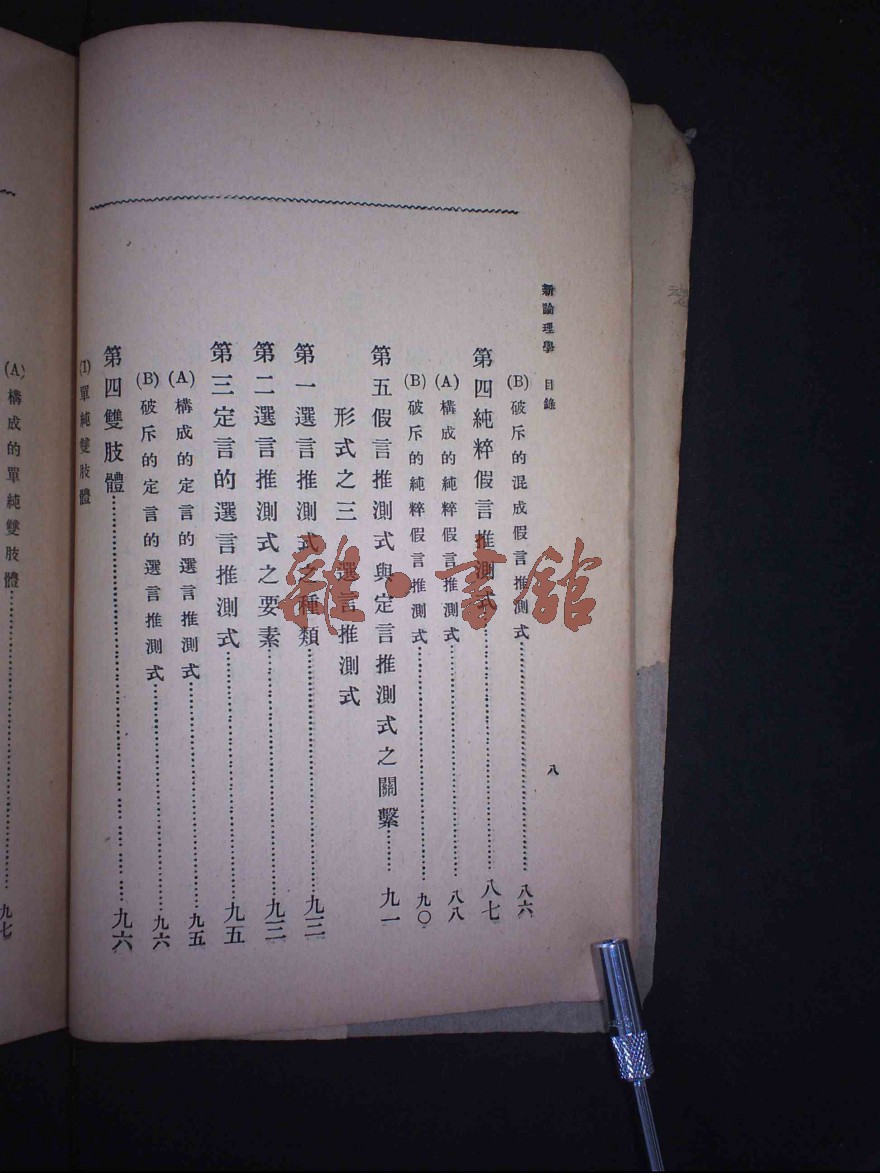 新論理學 目錄 八
(B) 破斥的混成假言推測式 八六
第四純粹假言推測式 八七
(A) 構成的純粹假言推測式 八八
(B) 破斥的純粹假言推測式 九〇
第五假言推測式與定言推測式之關繫 九一
形式之三 選言推測式
第一選言推測式之種類 九三
第二選言推測式之要素 九三
第三定言的選言推測式 九五
(A) 構成的定言的選言推測式 九五
(B) 破斥的定言的選言推測式 九六
第四雙肢體 九六
(1) 單純雙肢體
(A) 構成的單純雙肢體 九七
雜·書館